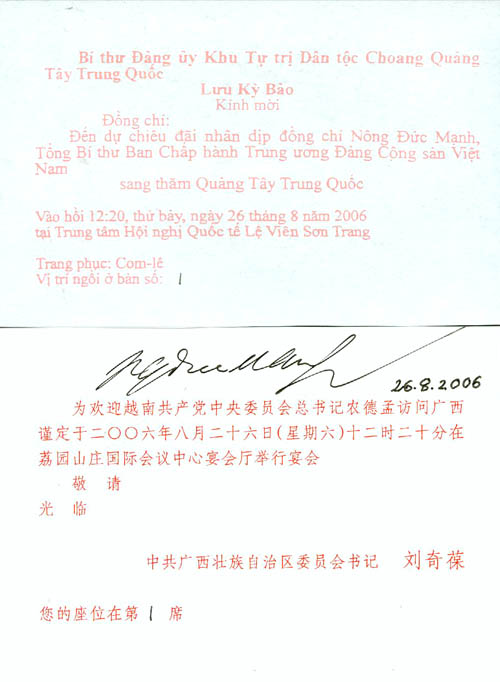 Bí thư Đảng ủy Khu Tự trị Dân tộc Choang Quảng
Tây Trung Quốc
Lưu Kỳ Bảo
Kính mời
Đồng chí:
Đến dự chiêu đãi nhân dịp đồng chí Nông Đức Mạnh,
Tổng Bí thư Ban Chấp hành Trung ương Đảng Cộng sản Việt
Nam
sang thăm Quảng Tây Trung Quốc
Vào hồi 12:20, thứ bảy, ngày 26 tháng 8 năm 2006
tại Trung tâm Hội nghị Quốc tế Lệ Viên Sơn Trang
Trang phục: Com-lê
Vị trí ngồi ở bàn số: 1
26.8.2006
为欢迎越南共产党中央委员会总书记农德孟访问广西
谨定于二〇〇六年八月二十六日(星期六)十二时二十分在
荔园山庄国际会议中心宴会厅举行宴会
敬 请
光 临
中共广西壮族自治区委员会书记 刘奇葆
您的座位在第 1 席